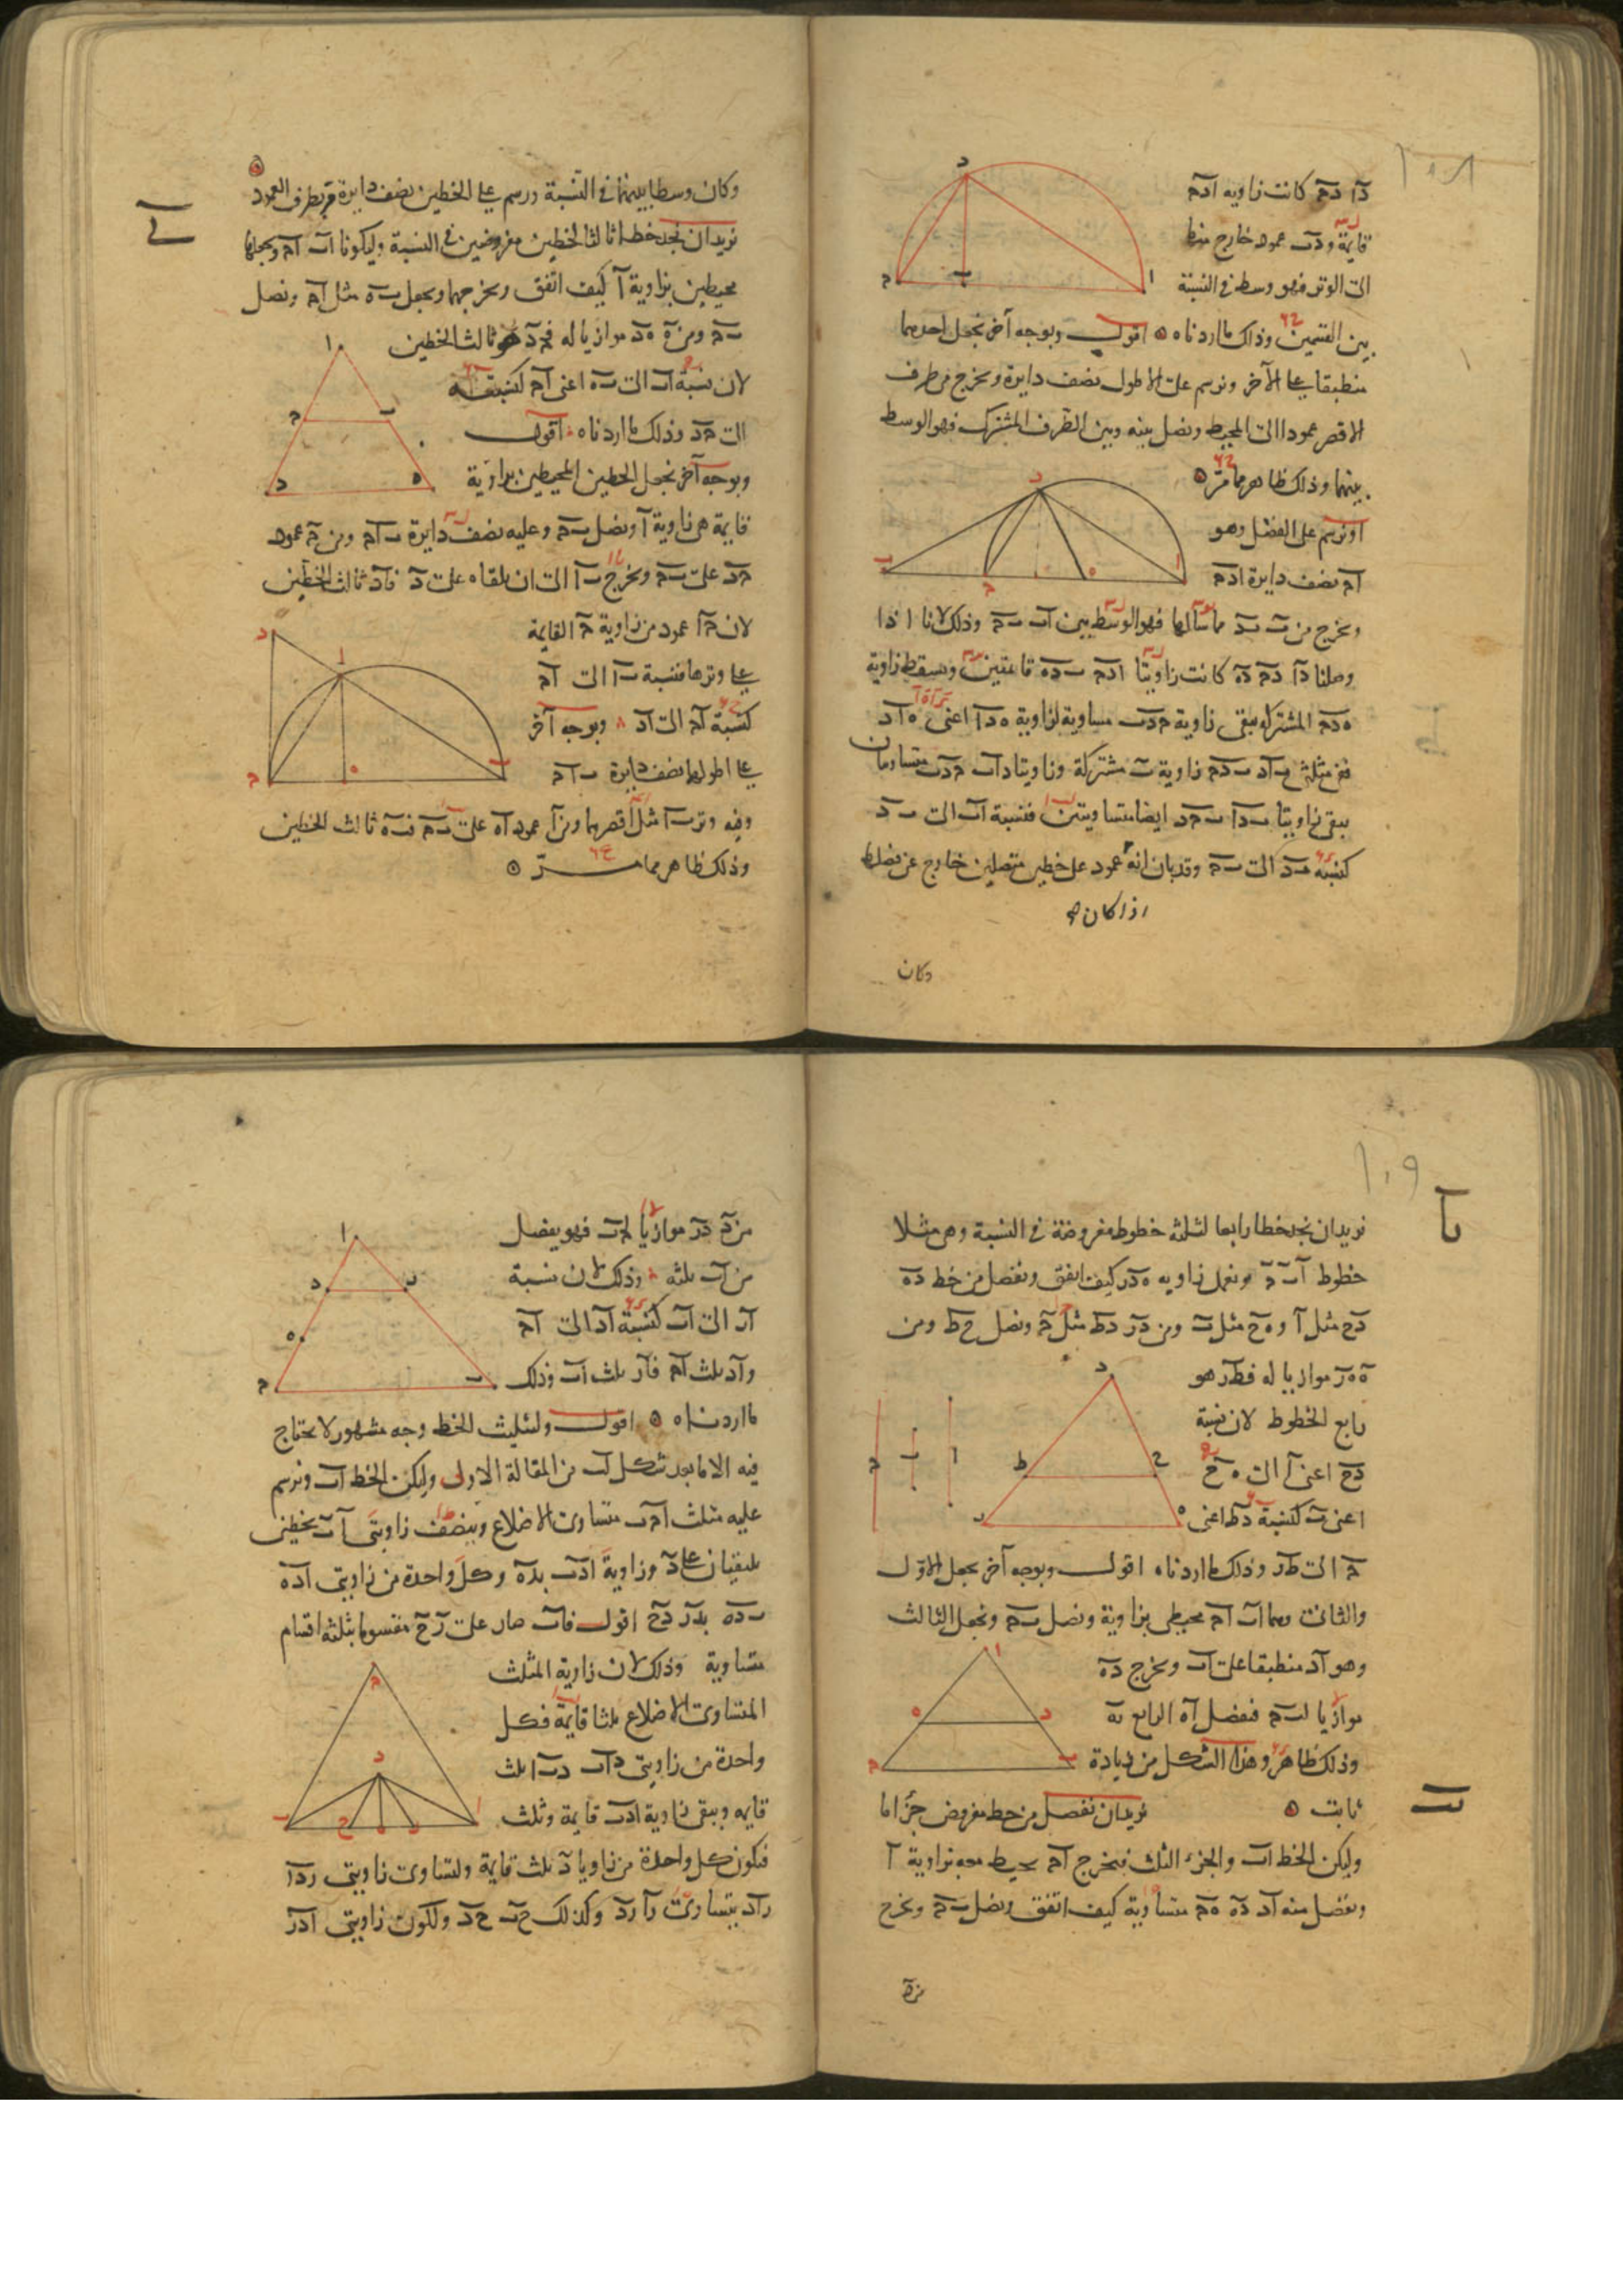 دا دح كانت زاويه ادح
قايمة ودب عمود خارج منها
الى الوتر فهو وسط فى النسبة
بين القسمين وذلك ما اردناه اقول وبوجه آخر نجعل احدهما
منطبقا على الآخر ونرسم على الاطول نصف دايرة ونخرج من طرف
الاقصر عمودا الى المحيط ونصل بينه وبين الطرف المشترك فهو الوسط
بينهما وذلك ظاهر مما مر
او نرسم على الفضل وهو
اح نصف دايرة ادح
ونخرج من ب بد مماسا لها فهو الوسط بين اب بح وذلك لانا اذا
وصلنا دا دح ده كانت زاويتا ادح بده قائمتين ونسقط زاوية
هدح المشتركه يبقى زاوية حدب مساوية لزاوية هدا اعنى هاد
ففى مثلثى باد بدح زاوية ب مشتركة وزاويتا داب حدب متساويتان
يبقى زاويتا بدا بحد ايضا متساويتين فنسبة اب الى بد
كنسبة بد الى بح وقد بان انه عمود على خطين متصلين خارج عن نصلط
اذا كان
وكان
وكان وسطا بينهما فى النسبة ورسم على الخطين نصف دايرة مر بطرف العمود
ى
نريد ان نجد خطا ثالثا لخطين مفروضين فى النسبة وليكونا اب اح ونجعلهما
محيطين بزاوية ا كيف اتفق ونخرجهما ونجعل به مثل اح ونصل
بح ومن ه هد موازيا له فحد هو ثالث الخطين
لان نسبة اب الى به اعنى اح كنسبة اح
الى حد وذلك ما اردناه اقول
وبوجه آخر نجعل الخطين المحيطين بزاوية
قايمة هى زاوية ا ونصل بح وعليه نصف دايرة باح ومن ح عمود
حد على بح ونخرج با الى ان يلقاه على د فاد ثالث الخطين
لان حا عمود من زاوية ح القايمة
على وترها فنسبة با الى اح
كنسبة اح الى اد وبوجه آخر
على اطولهما نصف دايرة باح
وفيه وتر با مثل اقصرهما ومن ا عمود اه على بح فبه ثالث الخطين
وذلك ظاهر مما مر
يا
نريد ان نجد خطا رابعا لثلثه خطوط مفروضة فى النسبة وهى مثلا
خطوط ا ب ح ونعمل زاويه هدر كيف اتفق ونفصل من خط ده
دح مثل ا وهح مثل ب ومن در دط مثل ح ونصل حط ومن
ه هر موازيا له فطر هو
رابع الخطوط لان نسبة
دح اعنى ا الى هح
اعنى ب كنسبة دط اعنى
ح الى طر وذلك ما اردناه اقول وبوجه آخر نجعل الاول
والثانى وهما اب اح محيطى بزاوية ونصل بح ونجعل الثالث
وهو اد منطبقا على اب ونخرج ده
موازيا لبح فنفصل اه الرابع به
وذلك ظاهر وهذا الشكل من زيادة
ثابت
يب
نريد ان نفصل من خط مفروض جزءا ما
وليكن الخط اب والجزء الثلث فنخرج اح يحيط معه بزاوية ا
ونفصل منه اد ده هح متساوية كيف اتفق ونصل بح ونخرج
من د
من د در موازيا لحب فهو يفصل
من اب ثلثه وذلك لان نسبة
ار الى اب كنسبة اد الى اح
واد ثلث اح فار ثلث اب وذلك
ما اردناه اقول ولتثليث الخط وجه مشهور لا يحتاج
فيه الا ما بعد شكل لب من المقالة الاولى وليكن الخط اب ونرسم
عليه مثلث احب متساوى الاضلاع وينصف زاويتى ا ب بخطين
يلتقيان على د وزاوية ادب بده وكل واحدة من زاويتى اده
بده بدر دح اقول فاب صار على ر ح مقسوما بثلثه اقسام
متساوية وذلك لان زاوية المثلث
المتساوى الاضلاع ثلثا قايمة فكل
واحدة من زاويتى داب دبا ثلث
قايمه ويبقى زاوية ادب قايمة وثلث
فيكون كل واحدة من زوايا د ثلث قايمة ولتساوى زاويتى ردا
راد يتساوى را رد وكذلك حب حد ولكون زاويتى ادر